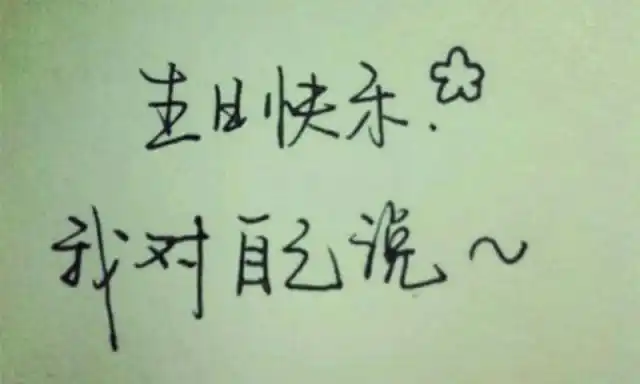 生日快乐.
我对自己说~